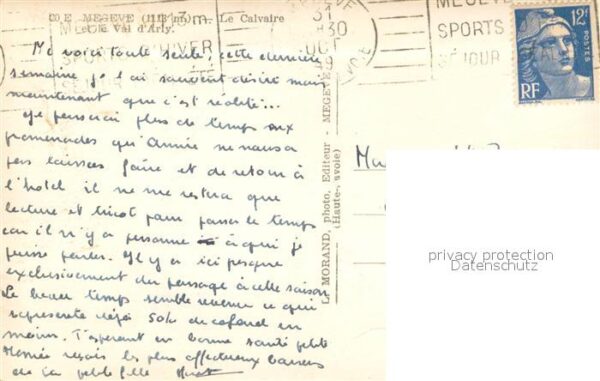 20 E MEGEVE (1113 m.) Le Calvaire
et le Val d'Arly.
MEGEVE
SPORTS D'HIVER
SÉJOUR
30
OCT
MEGEVE
SPORTS
SÉJOUR
12F
POSTES
RF
Me voici toute seule, cette dernière
semaine je l'ai souvent désiré mais
maintenant que c'est réalité...
Je passerai plus de temps aux
promenades qu'Annie ne nous a
pas laissées faire et de retour à
l'hôtel il ne me restera que
lecture et tricot pour passer le temps
car il n'y a personne à qui je
puisse parler. Il y a ici presque
exclusivement du passage à cette saison
Le beau temps semble revenu ce qui
représente déjà 50% de cafard en
moins. T'espérant en bonne santé petite
reçois les plus affectueux baisers
de ta petite fille
L. MORAND, photo. Editeur - MEGEVE
(Haute-Savoie)
privacy protection
Datenschutz